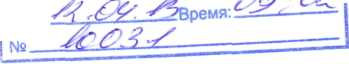 12.04.13 Время: 09
№ 10031